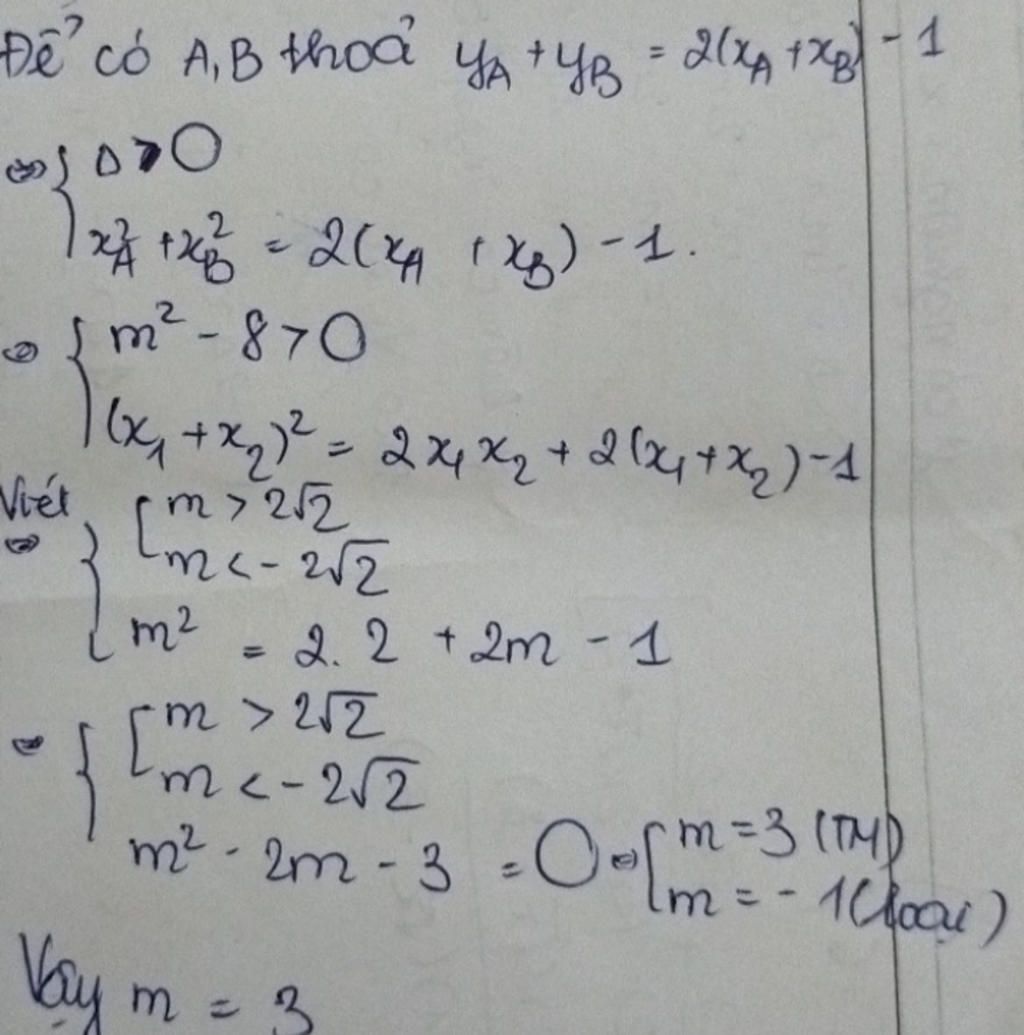 Để có A,B thoả y_A + y_B = 2(x_A + x_B) - 1
⇔ { Δ > 0
x_A^2 + x_B^2 = 2(x_A + x_B) - 1.
⇔ { m^2 - 8 > 0
(x_1 + x_2)^2 = 2x_1 x_2 + 2(x_1 + x_2) - 1
Viét
⇔ { [ m > 2√2
m < - 2√2
m^2 = 2. 2 + 2m - 1
⇔ { [ m > 2√2
m < - 2√2
m^2 - 2m - 3 = 0 ⇔ [ m = 3 (TM)
m = - 1 (loại)
Vậy m = 3